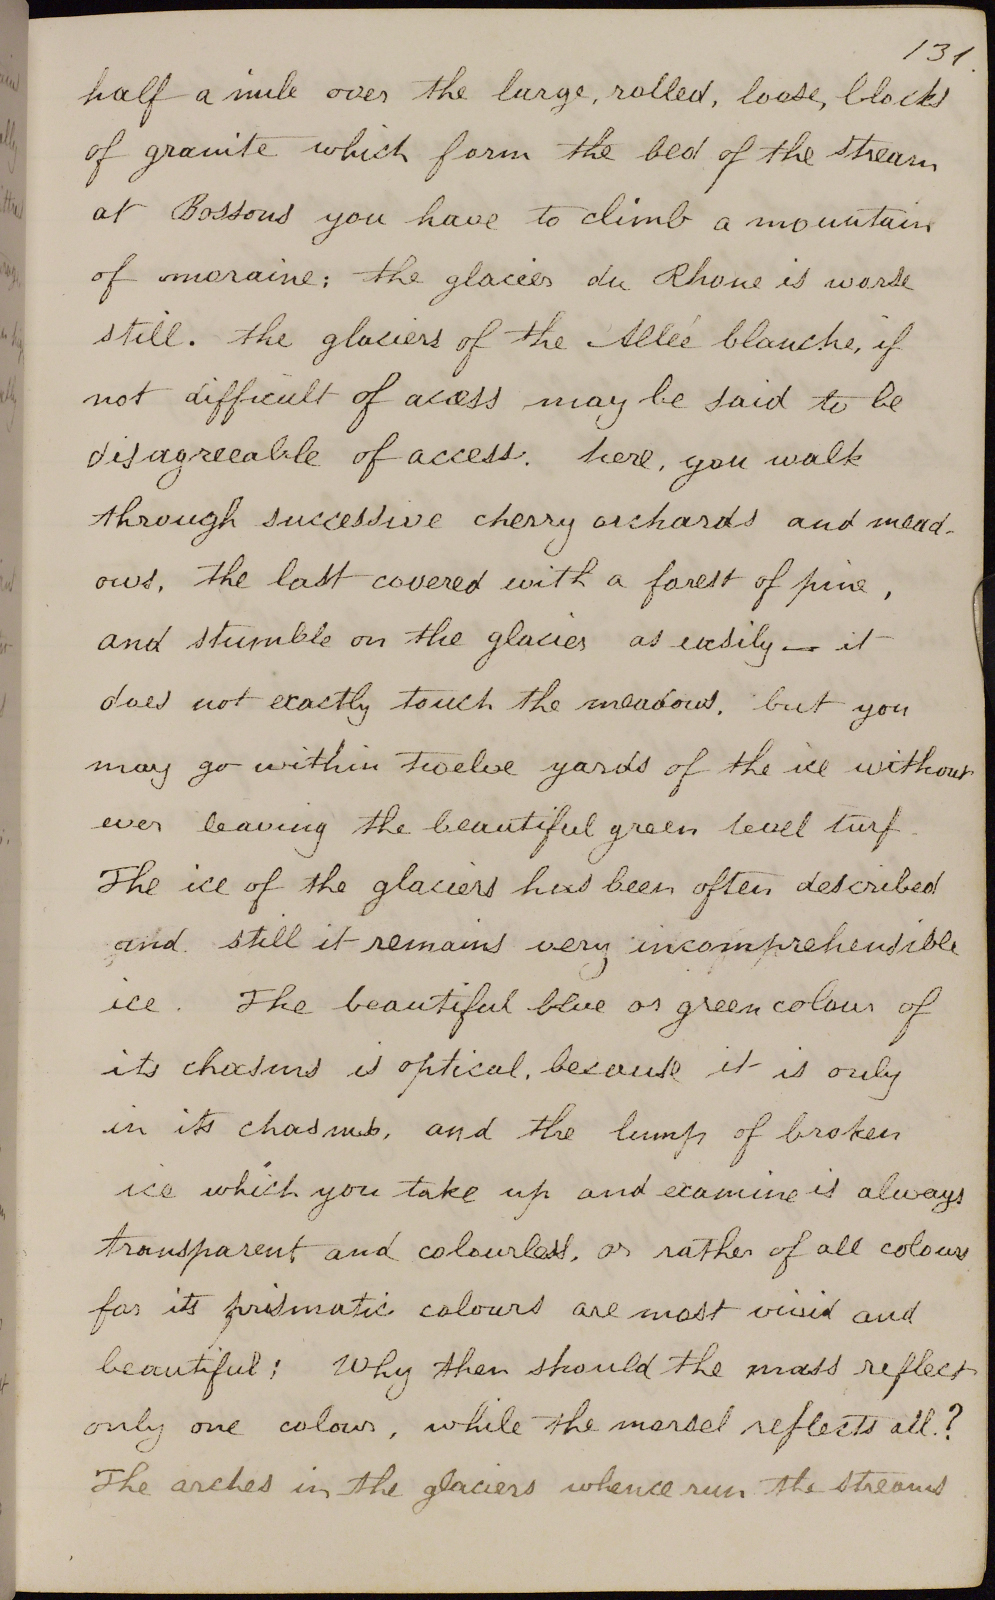 131.
half a mile over the large, rolled, loose, blocks
of granite which form the bed of the stream
at Bossons you have to climb a mountain
of moraine; the glacier du Rhone is worse
still. the glaciers of the Allée blanche, if
not difficult of access may be said to be
disagreeable of access. here, you walk
through successive cherry orchards and mead-
ows, the last covered with a forest of pine,
and stumble on the glacier as easily — it
does not exactly touch the meadows, but you
may go within twelve yards of the ice without
ever leaving the beautiful green level turf.
The ice of the glaciers has been often described
and still it remains very incomprehensible
ice. The beautiful blue or green colour of
its chasms is optical, because it is only
in its chasms, and the lump of broken
ice which you take up and examine is always
transparent and colourless, or rather of all colours
for its prismatic colours are most vivid and
beautiful; Why then should the mass reflect
only one colour, while the morsel reflects all.?
The arches in the glaciers whence run the streams